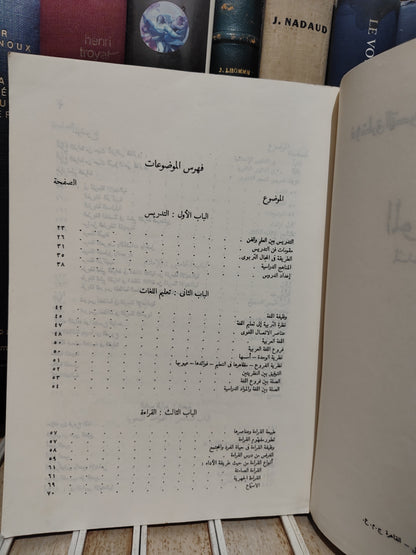 NOUX
henri
troyat
J. LHOMER
J. NADAUD
LE VO
فهرس الموضوعات
الموضوع
الصفحة
الباب الأول : التدريس
التدريس بين العلم والفن ٢٣
مقومات فن التدريس ٣١
الطريقة فى المجال التربوى ٣٥
المناهج الدراسية
إعداد الدروس ٣٨
الباب الثانى : تعليم اللغات
وظيفة اللغة ٤٢
نظرة التربية إلى تعليم اللغة ٤٥
عناصر الاتصال اللغوى ٤٧
اللغة العربية ٤٨
فروع اللغة العربية ٥٠
نظرية الوحدة – أسسها ٥٠
نظرية الفروع – مظاهرها فى التعليم – فوائدها – عيوبها ٥١
التوفيق بين النظريتين
الصلة بين فروع اللغة ٥٣
الصلة بين اللغة والمواد الدراسية ٥٤
الباب الثالث : القراءة
طبيعة القراءة وعناصرها ٥٧
تطور مفهوم القراءة ٥٧
وظيفة القراءة فى حياة الفرد والمجتمع ٥٨
الغرض من درس القراءة
أنواع القراءة من حيث طريقة الأداء :
القراءة الصامتة ٦١
القراءة الجهرية ٦٩
الاستماع ٧٠
القاهرة ج.م.ع.